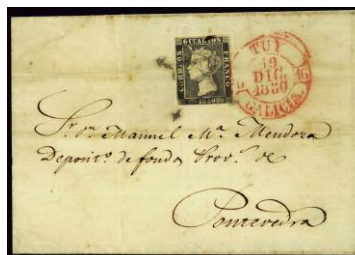 6 CUARTOS
CORREOS
FRANCO
1850
TUY
19
DIC
1850
GALICIA
Sr. Dn. Manuel Ma. Mendoza
Deposito. de fondos Prov. de
Pontevedra